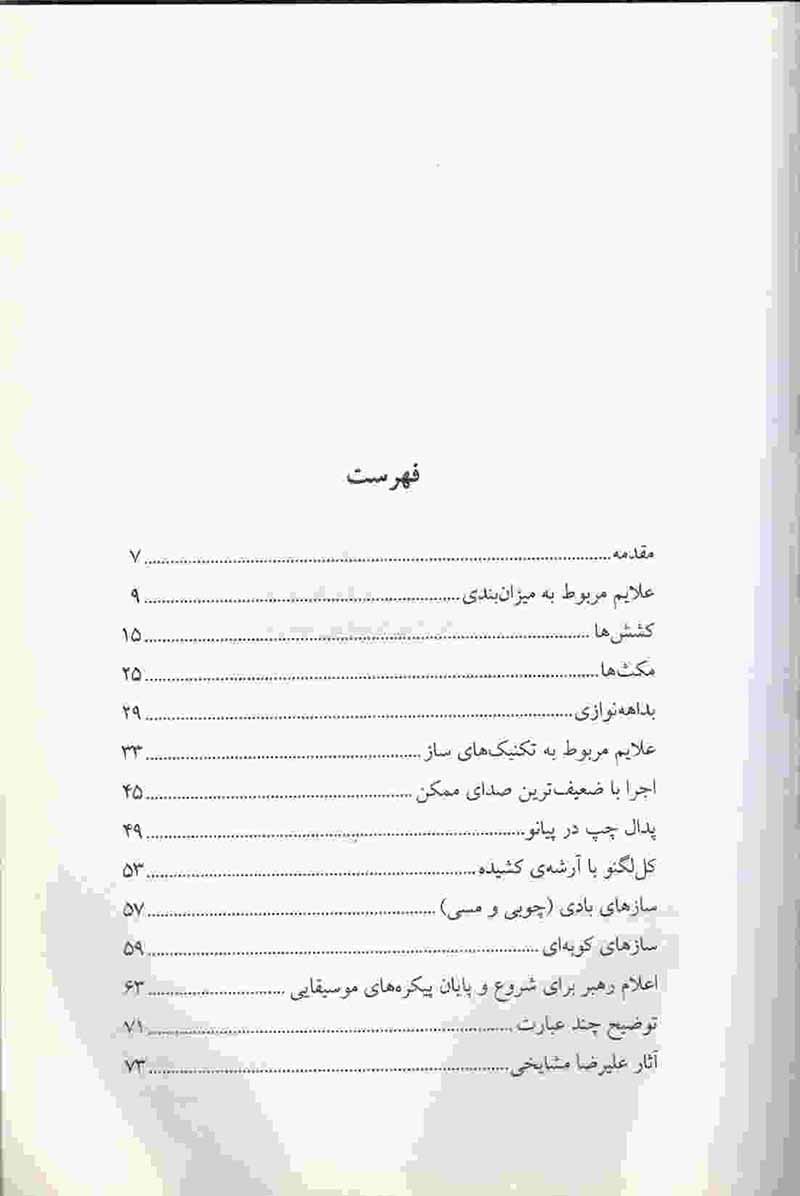 فهرست
مقدمه ۷
علایم مربوط به میزان‌بندی ۹
کشش‌ها ۱۵
مکث‌ها ۲۵
بداهه‌نوازی ۲۹
علایم مربوط به تکنیک‌های ساز ۳۳
اجرا با ضعیف‌ترین صدای ممکن ۴۵
پدال چپ در پیانو ۴۹
کل‌لگنو با آرشه‌ی کشیده ۵۳
سازهای بادی (چوبی و مسی) ۵۷
سازهای کوبه‌ای ۵۹
اعلام رهبر برای شروع و پایان پیکره‌های موسیقایی ۶۳
توضیح چند عبارت ۷۱
آثار علیرضا مشایخی ۷۳